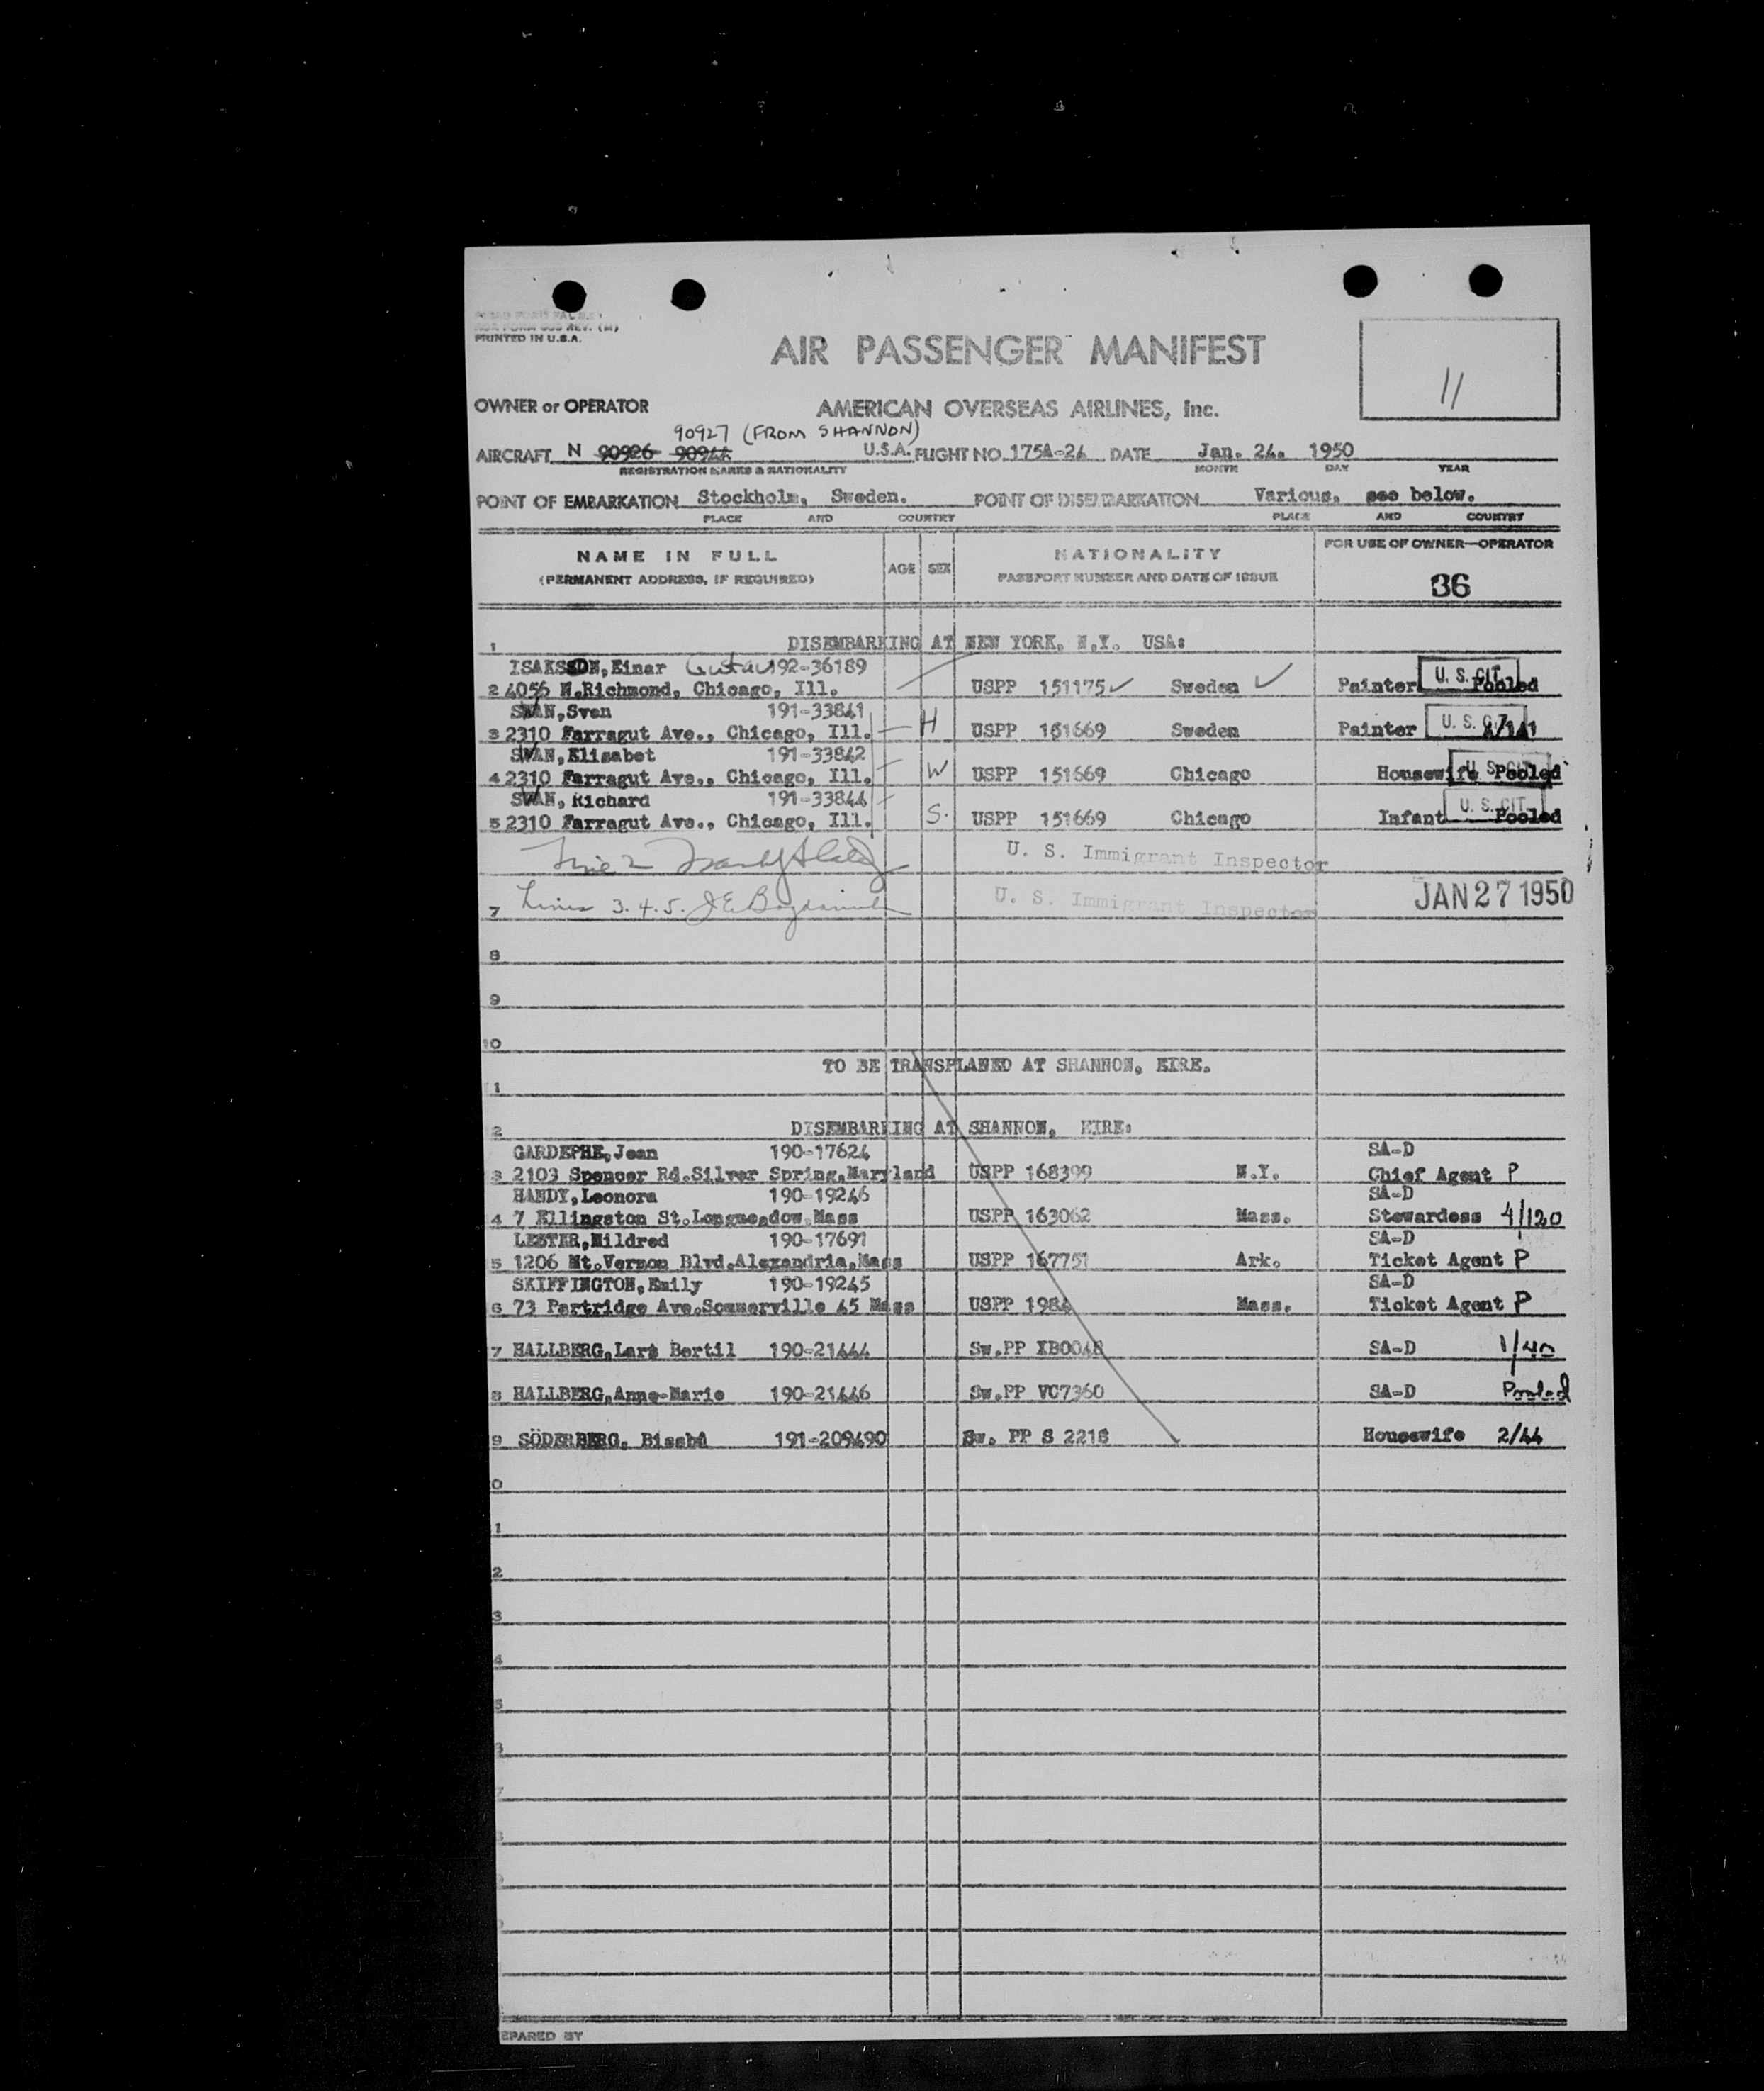 PRINTED IN U.S.A.
AIR PASSENGER MANIFEST
11
OWNER or OPERATOR AMERICAN OVERSEAS AIRLINES, Inc.
90927 (FROM SHANNON)
AIRCRAFT N 90926 90944 U.S.A. FLIGHT NO. 175A-24 DATE Jan. 24. 1950
REGISTRATION MARKS & NATIONALITY MONTH DAY YEAR
POINT OF EMBARKATION Stockholm, Sweden. POINT OF DISEMBARKATION Various, see below.
PLACE AND COUNTRY PLACE AND COUNTRY
NAME IN FULL AGE SEX NATIONALITY FOR USE OF OWNER—OPERATOR
(PERMANENT ADDRESS, IF REQUIRED) PASSPORT NUMBER AND DATE OF ISSUE
36
1 DISEMBARKING AT NEW YORK, N.Y. USA:
ISAKSSON, Einar Gustav 192-36189
2 4056 N.Richmond, Chicago, Ill. USPP 151175 Sweden Painter U. S. CIT. Pooled
SWAN, Sven 191-33841
3 2310 Farragut Ave., Chicago, Ill. H USPP 151669 Sweden Painter U. S. CIT. 4/141
SWAN, Elisabet 191-33842
4 2310 Farragut Ave., Chicago, Ill. W USPP 151669 Chicago Housewife U. S. CIT. Pooled
SWAN, Richard 191-33844
5 2310 Farragut Ave., Chicago, Ill. S. USPP 151669 Chicago Infant U. S. CIT. Pooled
Line 2 U. S. Immigrant Inspector
7 Lines 3. 4. 5. U. S. Immigrant Inspector JAN 27 1950
8
9
10
TO BE TRANSPLANED AT SHANNON, EIRE.
1
2 DISEMBARKING AT SHANNON, EIRE:
GARDEPHE, Jean 190-17624 SA-D
3 2103 Spencer Rd.Silver Spring,Maryland USPP 168399 N.Y. Chief Agent P
HANDY, Leonora 190-19246 SA-D
4 7 Ellingston St.Longmeadow Mass USPP 163062 Mass. Stewardess 4/120
LESTER, Mildred 190-17691 SA-D
5 1206 Mt.Vernon Blvd.Alexandria,Mass USPP 167751 Ark. Ticket Agent P
SKIFFINGTON, Emily 190-19245 SA-D
6 73 Partridge Ave.Sommerville 45 Mass USPP 1984 Mass. Ticket Agent P
7 HALLBERG, Lars Bertil 190-21444 Sw.PP XB0048 SA-D 1/40
8 HALLBERG, Anne-Marie 190-21446 Sw.PP VC7360 SA-D Pooled
9 SÖDERBERG, 191-209490 Sw. PP S 2218 Housewife 2/44
0
1
2
3
4
5
EPARED BY